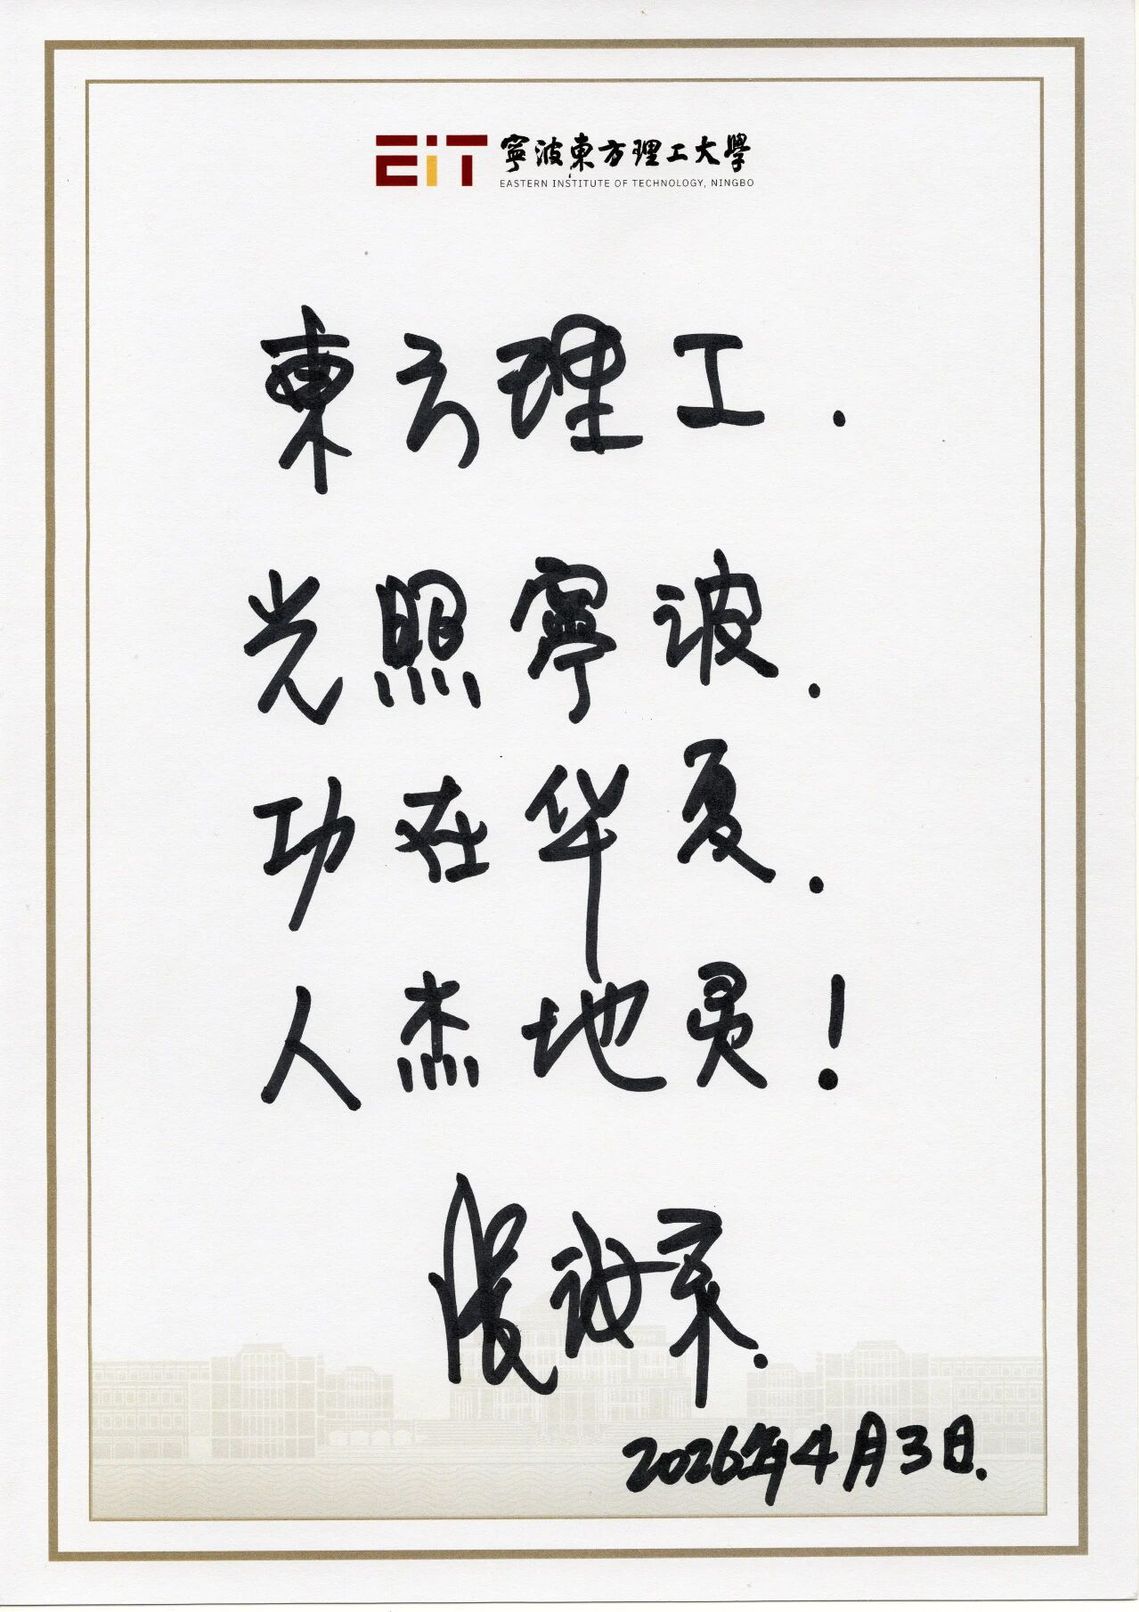 EiT 寧波東方理工大學
EASTERN INSTITUTE OF TECHNOLOGY, NINGBO
東方理工.
光照寧波.
功在华夏.
人杰地灵!
2026年4月3日.